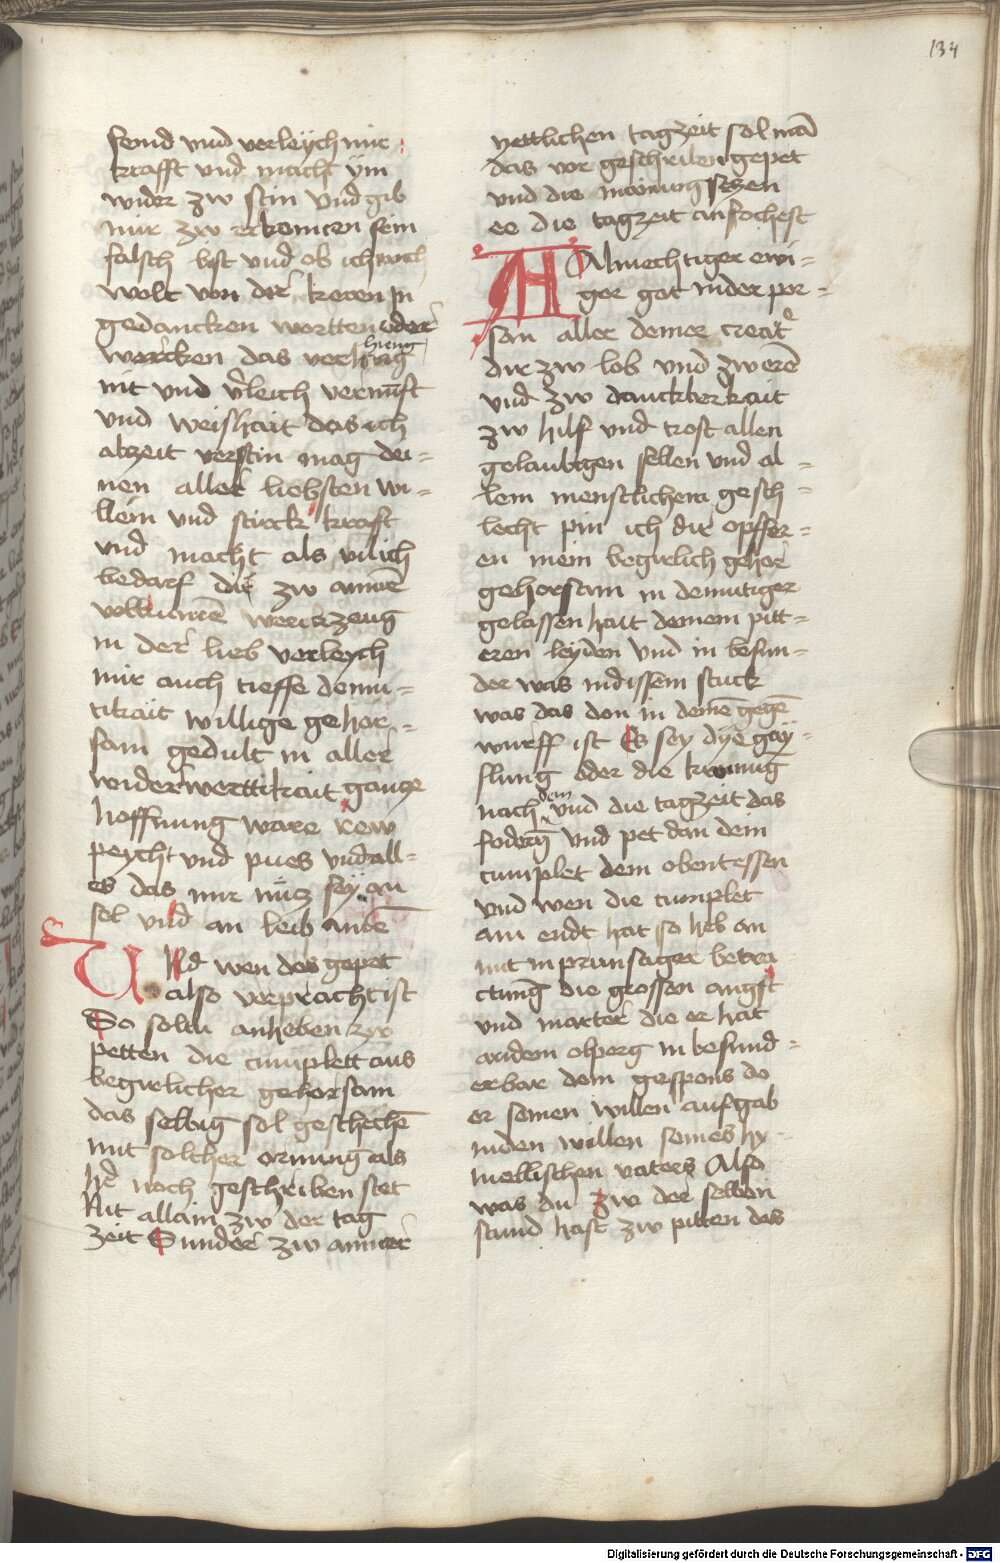 134
feind vnd verleych mir
krafft vnd macht ym
wider zw stin vnd gib
mir zw erkennen sein
falsch list vnd ob ich mich
wolt von dir keren jn
gedancken wortten oder
wercken das verheng
hieng
nit vnd v̉leich vernūft
vnd weishait das ich
alzeit verstin mag dei=
nen aller liebsten wi=
llem vnd sterck krafft
vnd macht als vil ich
bedarf dir zw ainnē
volkumē werckzeug
in der lieb verleych
mir auch tieffe demu=
tikait willige gehor=
sam gedult in aller
widerwerttikait gancze
hoffnung ware rew
peycht vnd pues vnd all=
es das mir nücz sey an
sel vnd an leib Amē
Vnd wen das gepet
also verpracht ist
So soltu anheben zw
petten die cumplett aus
begirlicher gehorsam
das selbig sol geschechē
mit solcher ornung als
hie noch geschriben stet
Nit allain zw der tag
zeit Sunder zw ainner
yettlichen tagzeit sol mā
das vor geschriben gepet
vnd die mainung seczen
ee die tagzeit anfochest
Almechtiger ewi=
ger got in der per=
son aller deiner creat
dir zw lob vnd zw erē
vnd zw danckberkait
zw hilf vnd trost allen
gelaubigen sellen vnd al=
lem menschlichem gesch=
lecht pin ich dir opffer=
en mein begirlich gehor
gehorsam in demutiger
gelassenhait deinem pitt=
eren leyden vnd in besun=
der was in dissem stuck
was das don in deinē gegē
wurff ist Es sey dye gay=
slung oder die kronung
nach dem vnd die tagzeit das
foderñ vnd pet dan dein
cumplet dem obentessen
vnd wen die cumplet
ain endt hat so heb an
mit inprunstiger betra
ctung die grossen angst
vnd marter die er hat
an dem olperg in besund=
erbar dem gespons do
er seinen willen auf gab
in den willen seines hy=
mellischen vaters Also
was du zw der selben
stund hast zw pitten das
Digitalisierung gefördert durch die Deutsche Forschungsgemeinschaft - DFG